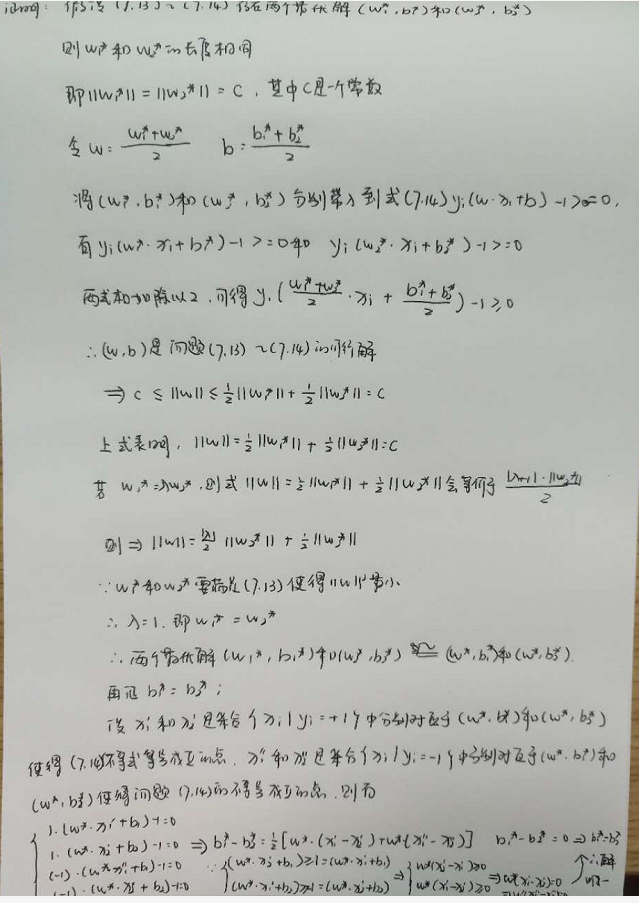 证明：假设(7.13)~(7.14)存在两个最优解(w₁*,b₁*)和(w₂*,b₂*)
则w₁*和w₂*的长度相同
即||w₁*||=||w₂*||=C，其中C是一个常数
令w=(w₁*+w₂*)/2 b=(b₁*+b₂*)/2
将(w₁*,b₁*)和(w₂*,b₂*)分别带入到式(7.14)yᵢ(w·xᵢ+b)-1>=0，
有yᵢ(w₁*·xᵢ+b₁*)-1>=0和 yᵢ(w₂*·xᵢ+b₂*)-1>=0
两式相加除以2，可得yᵢ((w₁*+w₂*)/2·xᵢ+(b₁*+b₂*)/2)-1≥0
∴(w,b)是问题(7.13)~(7.14)的可行解
⇒c≤||w||≤½||w₁*||+½||w₂*||=C
上式表明，||w||=½||w₁*||+½||w₂*||=C
若w₁*=λw₂*，则式||w||=½||w₁*||+½||w₂*||会等价于 |λ+1|·||w₂*||/2
则⇒||w||=|λ|/2 ||w₂*||+½||w₂*||
∵w₁*和w₂*要满足(7.13)使得||w||²最小
∴λ=1，即w₁*=w₂*
∴两个最优解(w₁*,b₁*)和(w₂*,b₂*) (w*,b₁*)和(w*,b₂*).
再证b₁*=b₂*；
设x₁'和x₂'是集合{xᵢ|yᵢ=+1}中分别对应于(w*,b₁*)和(w*,b₂*)
使得(7.14)不等式等号成立的点，x₁''和x₂''是集合{xᵢ|yᵢ=-1}中分别对应于(w*,b₁*)和
(w*,b₂*)使得问题(7.14)的不等号成立的点，则有
1·(w*·x₁'+b₁)-1=0
1·(w*·x₂'+b₂)-1=0 ⇒b₁*-b₂*=½[w*·(x₁'-x₂')+w*(x₁''-x₂'')] b₁*-b₂*=0⇒b₁*=b₂*
(-1)·(w*x₁''+b₁)-1=0 ∵{(w*·x₂'+b₁)≥1=(w*·x₁'+b₁) ⇒{w*(x₁'-x₂')≥0 ⇒w*(x₁'-x₂')=0 ∴解
(-1)·(w*·x₂''+b₂)-1=0 (w*·x₁'+b₂)≥1=(w*·x₂'+b₂) w*(x₁'-x₂')≥0 唯一